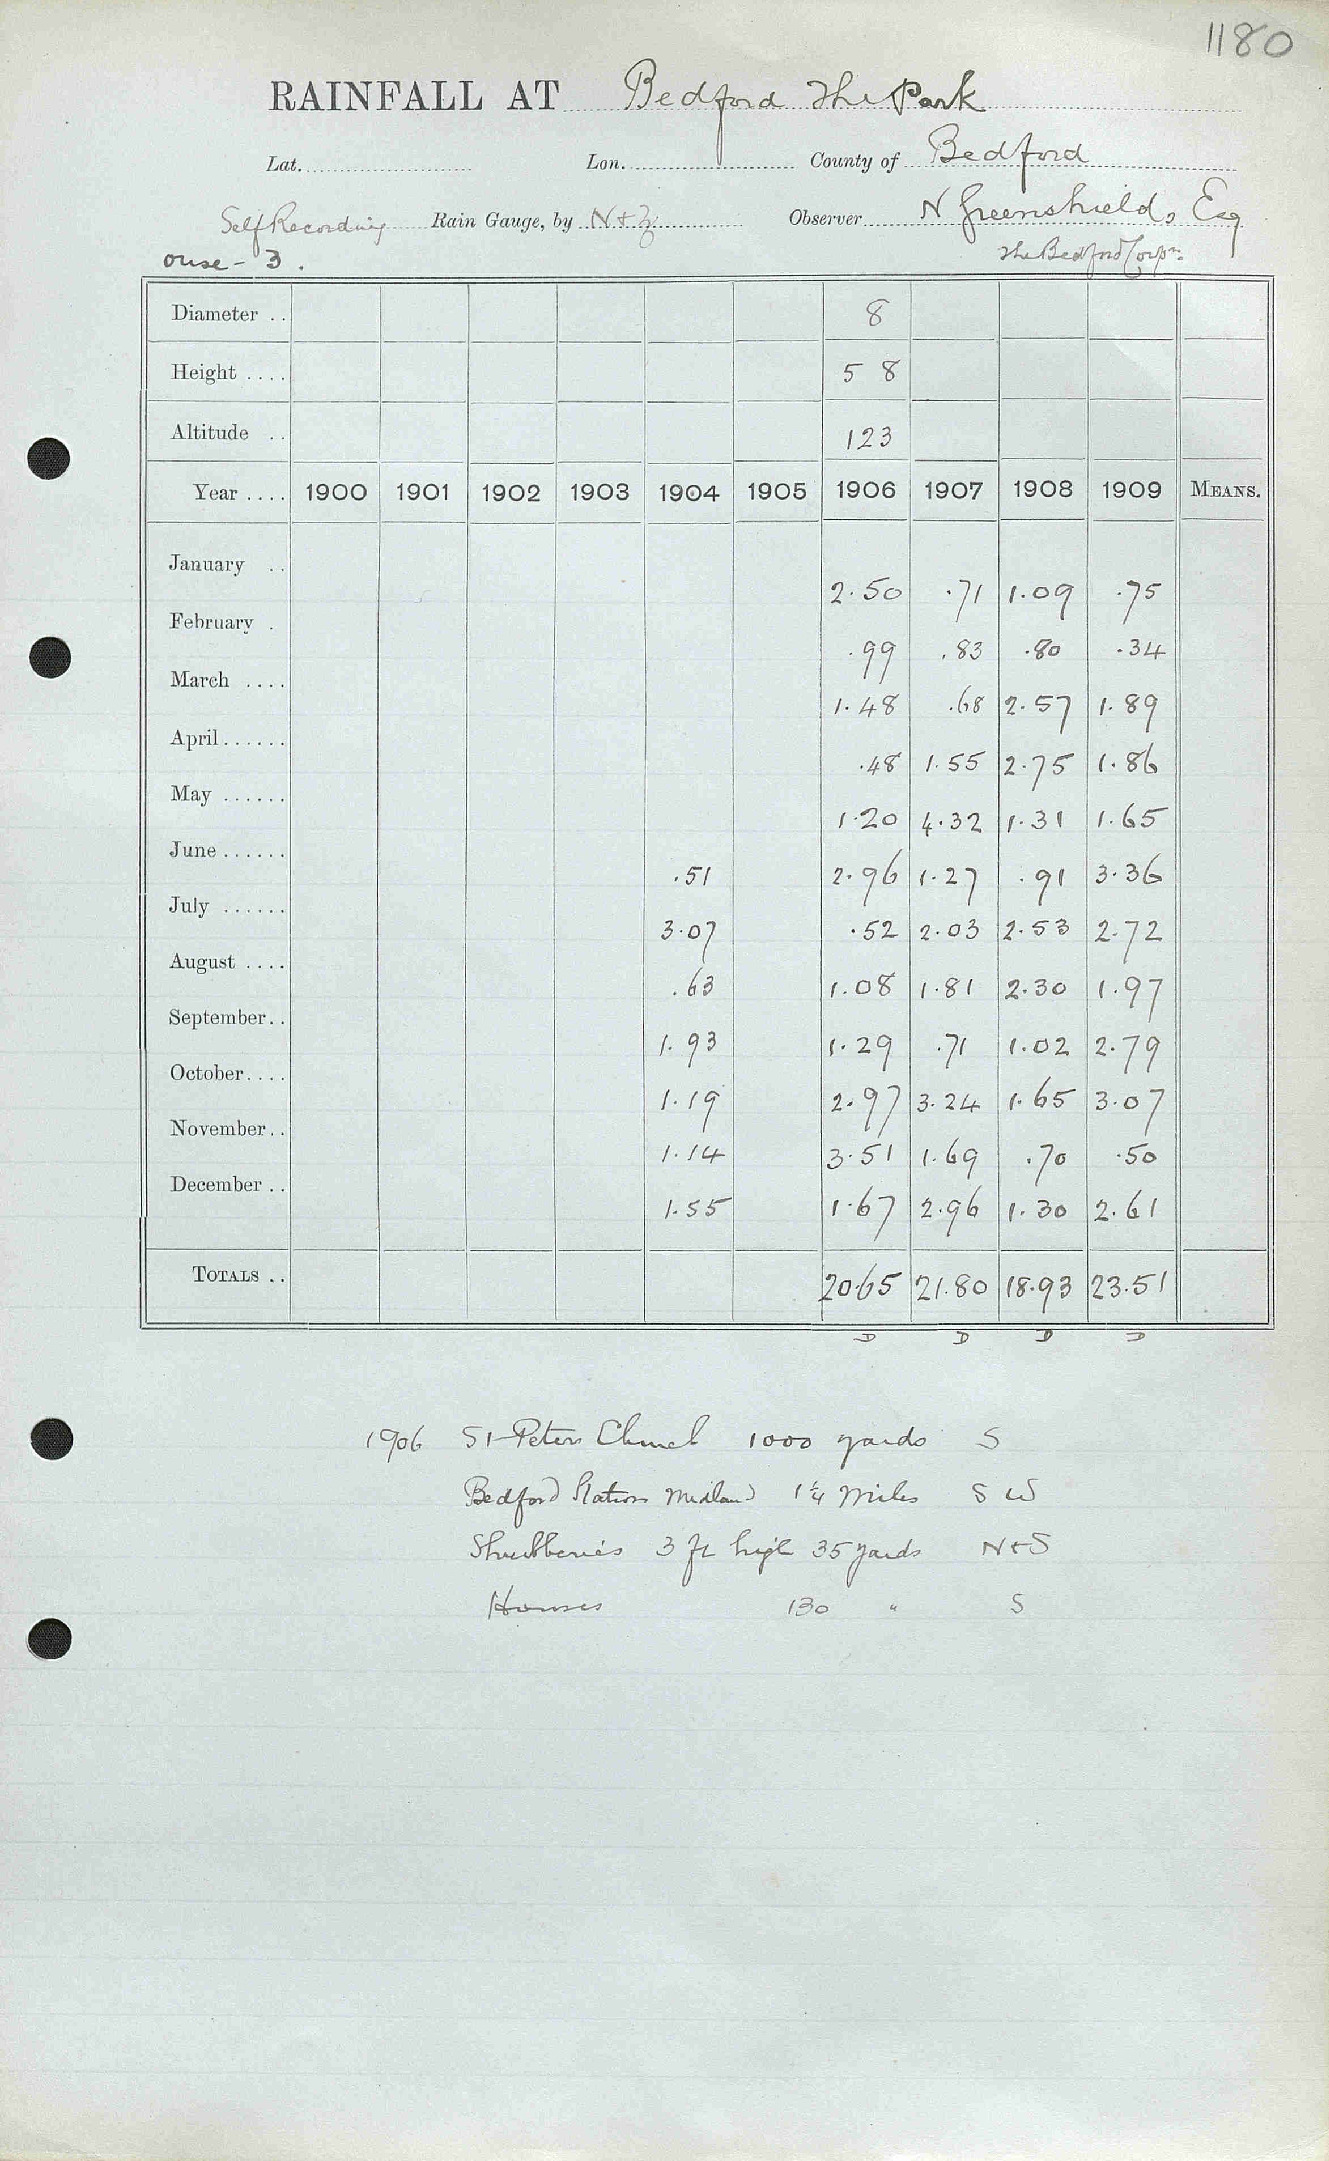 1180
RAINFALL AT Bedford The Park
Lat. Lon. County of Bedford
Self Recording Rain Gauge, by N + Z Observer N Greenshields, Esq
ouse - 3. The Bedford Corpn.
Diameter .. 8
Height .... 5 8
Altitude .. 123
Year .... 1900 1901 1902 1903 1904 1905 1906 1907 1908 1909 MEANS.
January .. 2.50 .71 1.09 .75
February . .99 .83 .80 .34
March .... 1.48 .68 2.57 1.89
April ...... .48 1.55 2.75 1.86
May ...... 1.20 4.32 1.31 1.65
June ...... .51 2.96 1.27 .91 3.36
July ...... 3.07 .52 2.03 2.53 2.72
August .... .63 1.08 1.81 2.30 1.97
September.. 1.93 1.29 .71 1.02 2.79
October.... 1.19 2.97 3.24 1.65 3.07
November.. 1.14 3.51 1.69 .70 .50
December .. 1.55 1.67 2.96 1.30 2.61
TOTALS .. 20.65 21.80 18.93 23.51
D D D D
1906 St Peters Church 1000 yards S
Bedford Station Midland 1¼ miles S W
Shrubberies 3 ft high 35 yards N + S
Houses 130 " S